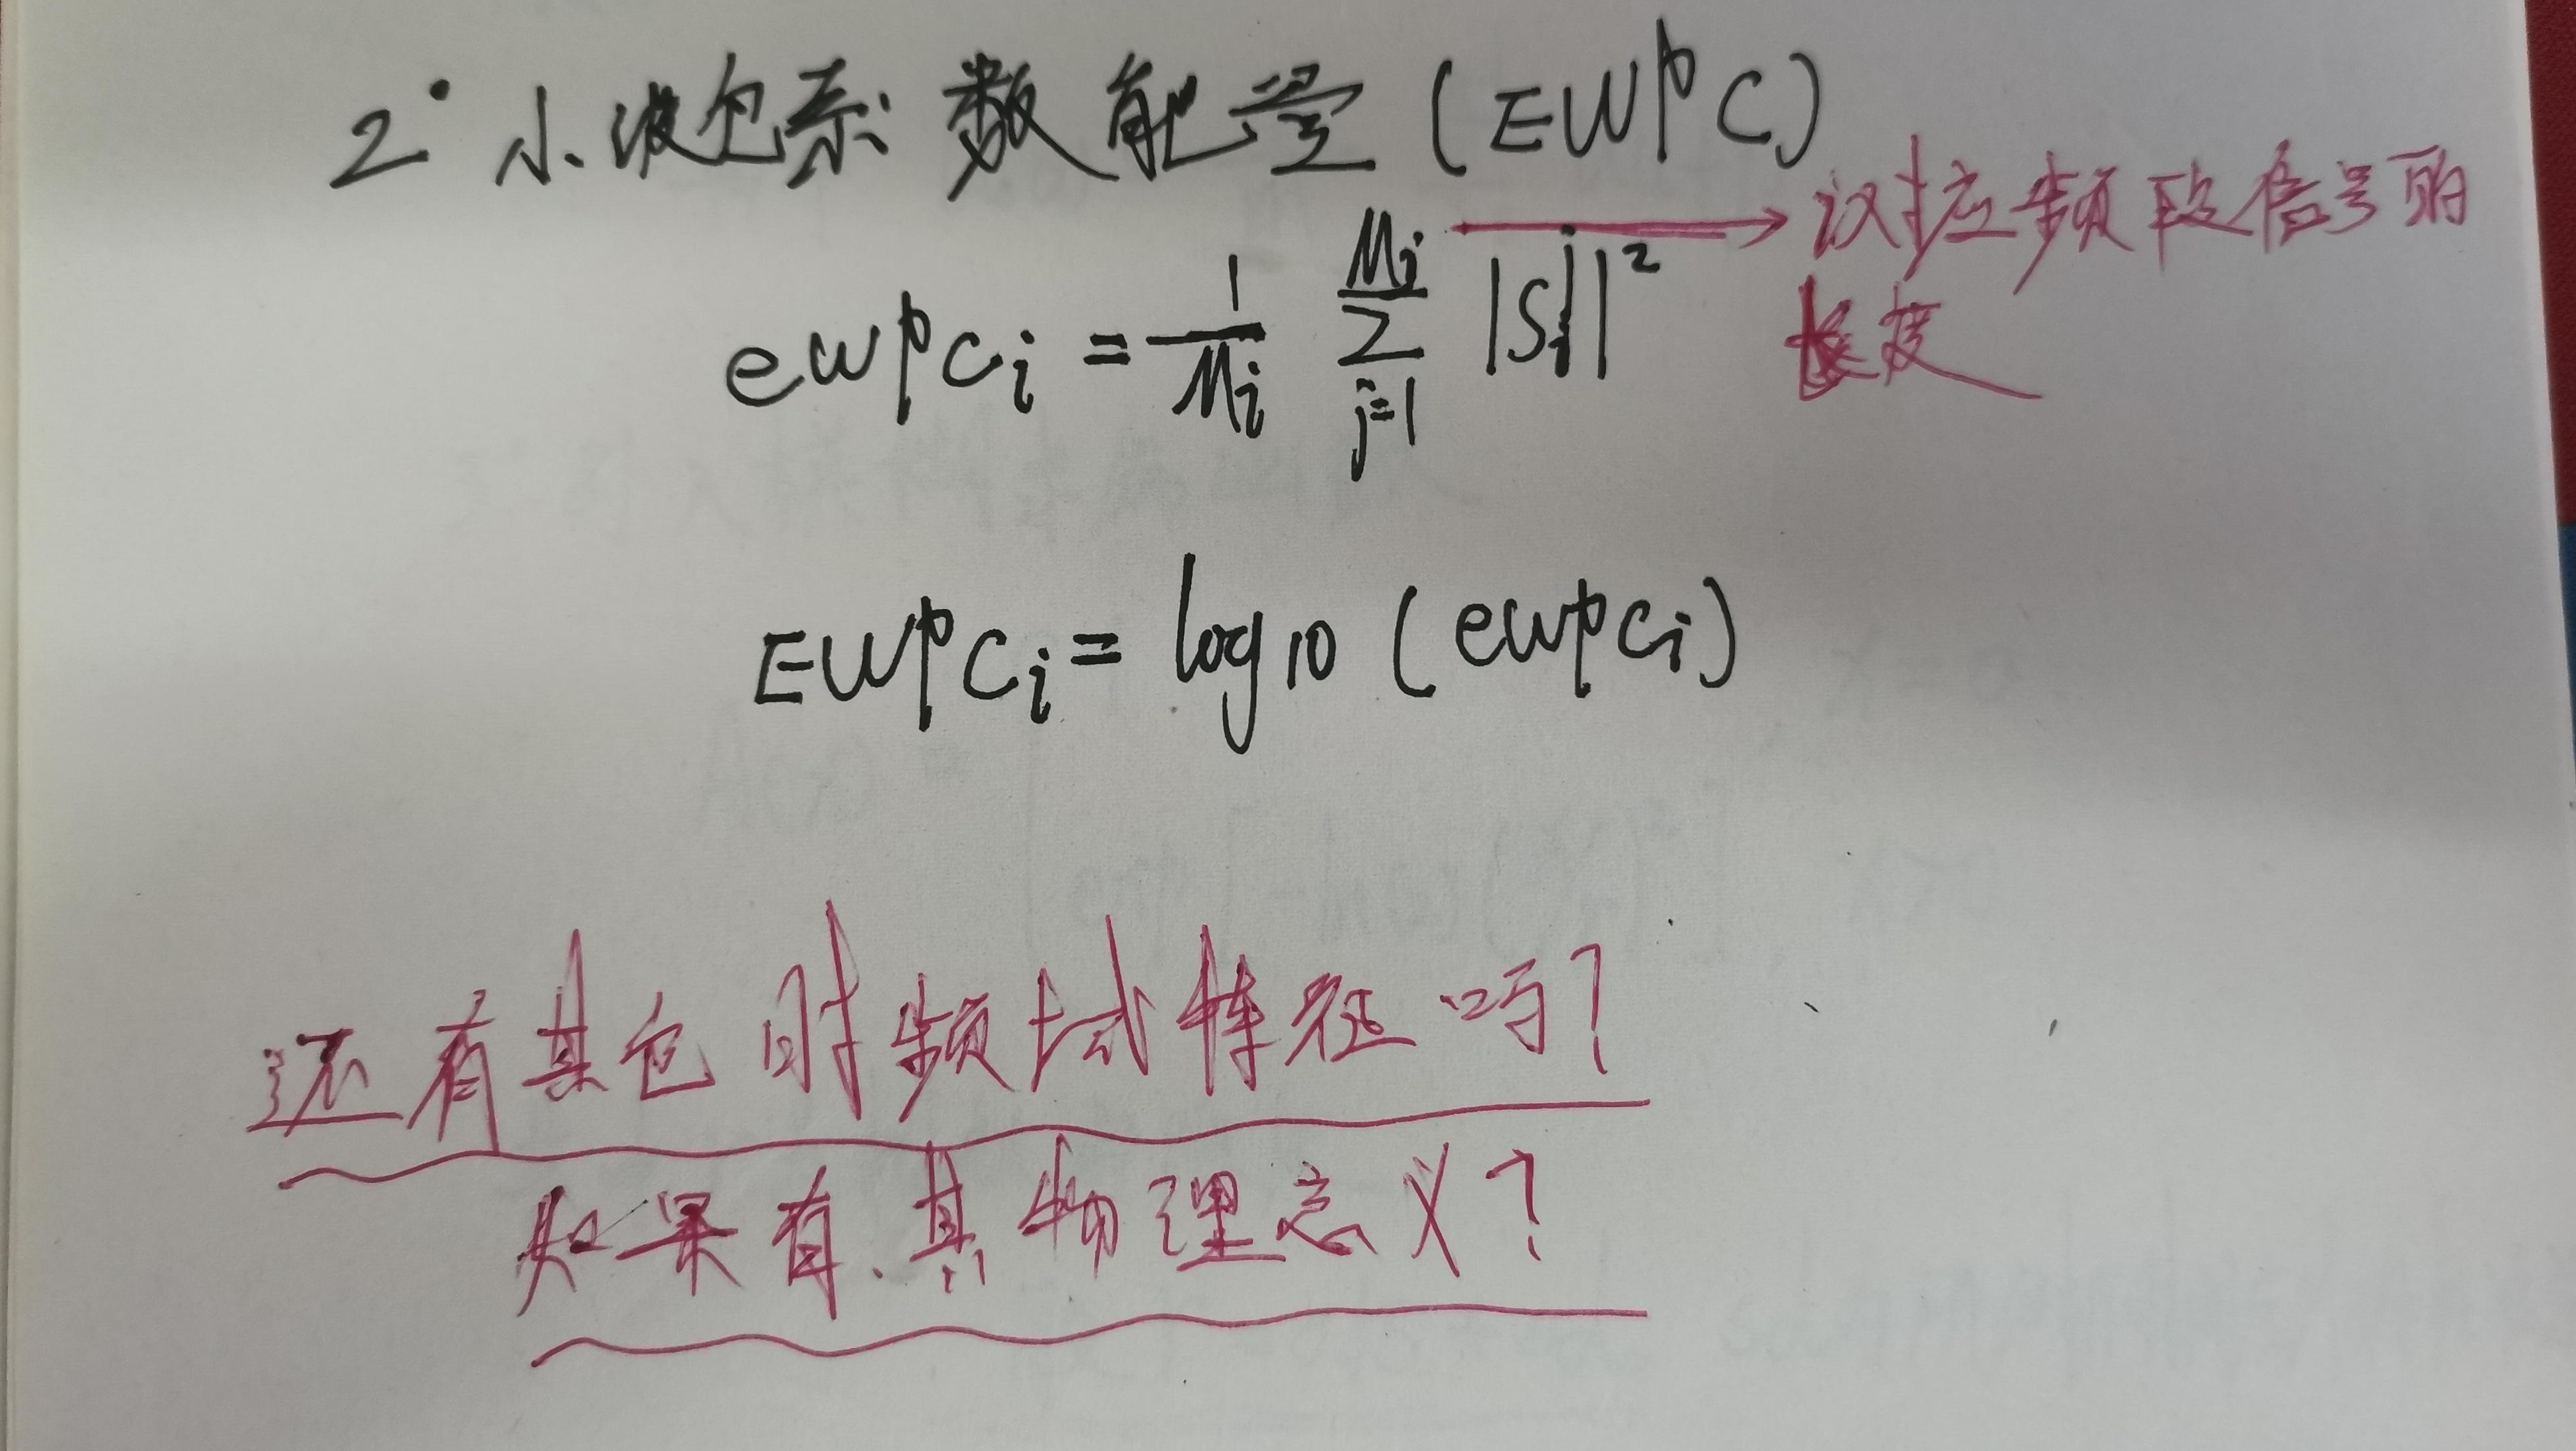 2° 小波包系数能量(EWPC)
→ 议拉应频段信号的
长度
ewpc_i = 1/M_i ∑_{j=1}^{M_i} |S_i^j|^2
EWPC_i = log10 (ewpc_i)
还有其它时频域特征吗?
如果有.其物理意义?